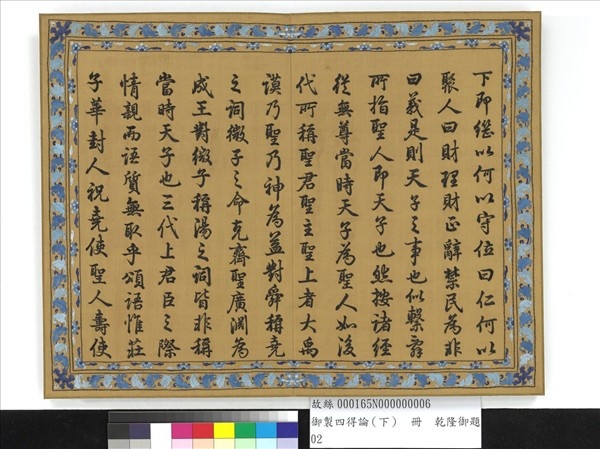 下即繼以何以守位曰仁何以
聚人曰財理財正辭禁民為非
曰義是則天子之事也似繫辭
所指聖人即天子也然按諸經
從無尊當時天子為聖人如後
代所稱聖君聖主聖上者大禹
謨乃聖乃神為益對舜稱堯
之詞微子之命克齊聖廣淵為
成王對微子稱湯之詞皆非稱
當時天子也三代上君臣之際
情親而語質無取乎頌語惟莊
子華封人祝堯使聖人壽使
故絲 000165N000000006
御製四得論(下) 冊 乾隆御題
02